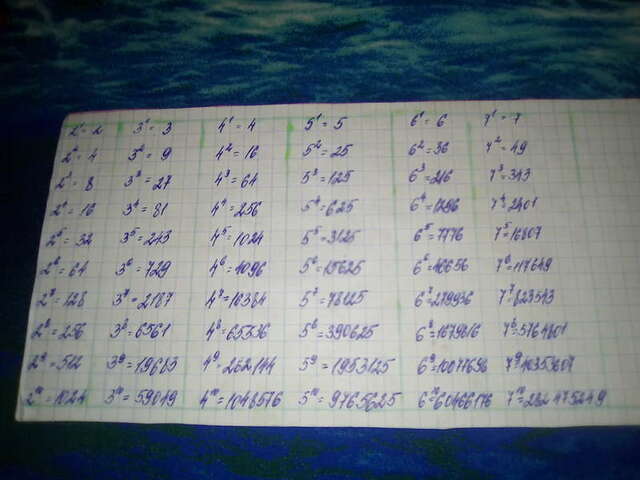 2¹=2 3¹=3 4¹=4 5¹=5 6¹=6 7¹=7
2²=4 3²=9 4²=16 5²=25 6²=36 7²=49
2³=8 3³=27 4³=64 5³=125 6³=216 7³=343
2⁴=16 3⁴=81 4⁴=256 5⁴=625 6⁴=1296 7⁴=2401
2⁵=32 3⁵=243 4⁵=1024 5⁵=3125 6⁵=7776 7⁵=16807
2⁶=64 3⁶=729 4⁶=4096 5⁶=15625 6⁶=46656 7⁶=117649
2⁷=128 3⁷=2187 4⁷=16384 5⁷=78125 6⁷=279936 7⁷=823543
2⁸=256 3⁸=6561 4⁸=65536 5⁸=390625 6⁸=1679616 7⁸=5764801
2⁹=512 3⁹=19683 4⁹=262144 5⁹=1953125 6⁹=10077696 7⁹=40353607
2¹⁰=1024 3¹⁰=59049 4¹⁰=1048576 5¹⁰=9765625 6¹⁰=60466176 7¹⁰=282475249